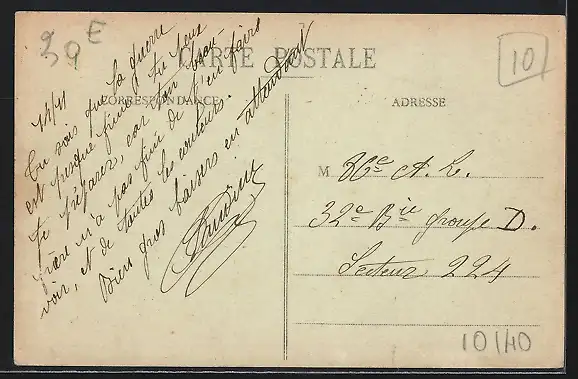 39 E
10
CARTE POSTALE
CORRESPONDANCE
ADRESSE
Tu sais que la guerre
est presque finie. Tu peux
te préparer, car ton beau-
frère n'a pas fini de t'en faire
voir, et de toutes les couleurs.
Bien gros baisers en attendant
M 86e A. L.
32e Bie groupe D.
Secteur 224
10/40